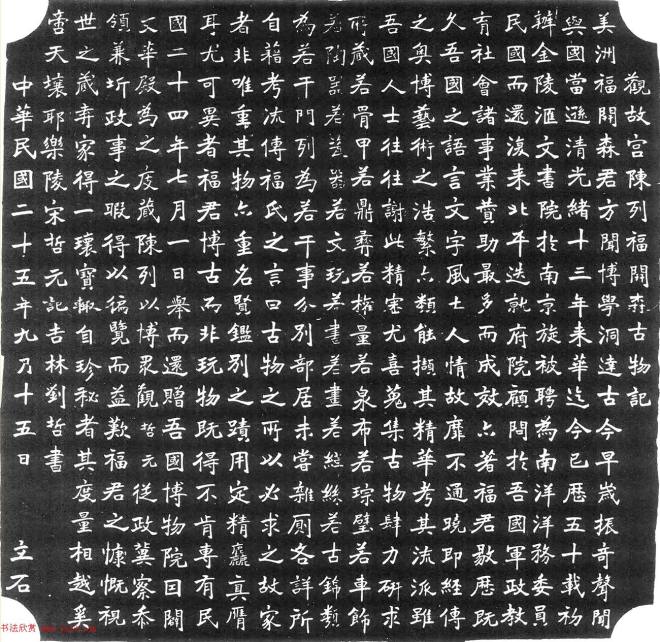 觀故宮陳列福開森古物記
美洲福開森君方聞博學洞達古今早歲振奇聲聞
與國當遜清光緒十三年来華迄今已歷五十載初
辦金陵滙文書院於南京旋被聘為南洋洋務委員
民國而還澓来北平迭就府院顧問於吾國軍政教
育社會諸事業贊助最多而成效亦著福君敭歷既
久吾國之語言文字風土人情故靡不通曉即經傳
之奥博藝術之浩繁亦類能擷其精華考其流派雖
吾國人士往往謝此精密尤喜蒐集古物肆力研求
所藏若骨甲若鼎彝若權量若泉布若琮璧若車飾
若陶器若瓷器若文玩若書若畫若緙絲若古錦類
為若干門列為若干事分別部居未嘗雜厠各詳所
自籍考流傳福氏之言曰古物之所以必求之故家
者非唯重其物亦重名賢鑑別之蹟用定精麤真贋
耳尤可異者福君博古而非玩物既得不肯專有民
國二十四年七月一日舉而還贈吾國博物院因闢
文華殿為之庋藏陳列以博眾觀哲元從政冀察忝
領兼圻政事之暇得以徧覽而益歎福君之慷慨視
世之藏弆家得一瓌寶輙自珍秘者其度量相越奚
啻天壤耶樂陵宋哲元記吉林劉哲書
中華民國二十五年九月十五日 立石
书法欣赏